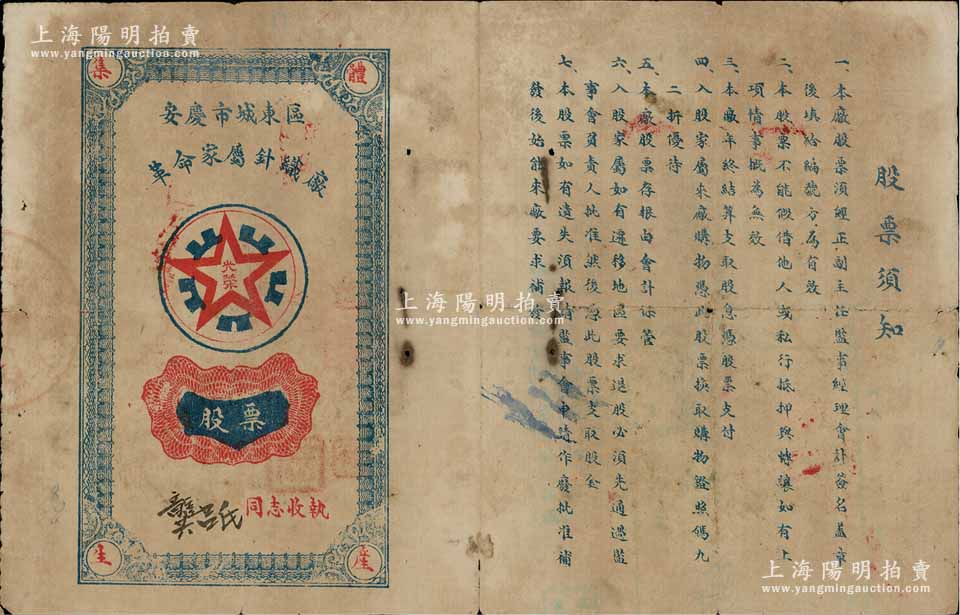 上海陽明拍賣
www.yangmingauction.com
集
體
安慶市城東區
革命家屬針織廠
光榮
股票
龔呂氏同志收執
生
產
股票須知
一、本廠股票須經正副主任監事經理會計簽名蓋章
後填給編號方為有效
二、本股票不能假借他人或私行抵押與轉讓如有上
項情事概為無效
三、本廠年終結算支取股息憑股票支付
四、入股家屬來廠購物憑此股票換取購物證照碼九
二折優待
五、本廠股票存根由會計保管
六、入股家屬如有遷移地區要求退股必須先通過監
事會負責人批准然後憑此股票支取股金
七、本股票如有遺失須報請監事會申請作廢批准補
發後始能來廠要求補發
上海陽明拍賣
www.yangmingauction.com
上海陽明拍賣
www.yangmingauction.com